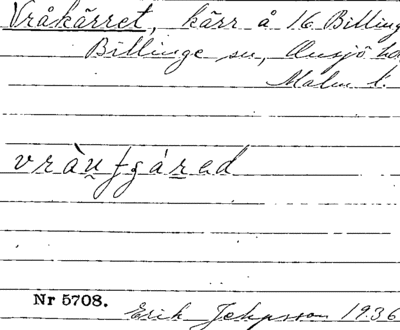 Vråkärret, kärr å 16 Billing
Billinge sn, Onsjö
Malm l.
Nr 5708.
Erik Jeppsson 1936